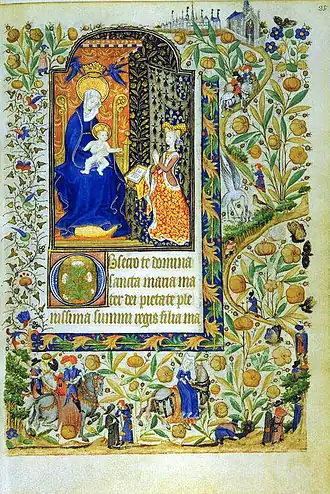 O bsecro te domina
sancta maria ma
ter dei pietate ple
nissima summi regis filia ma